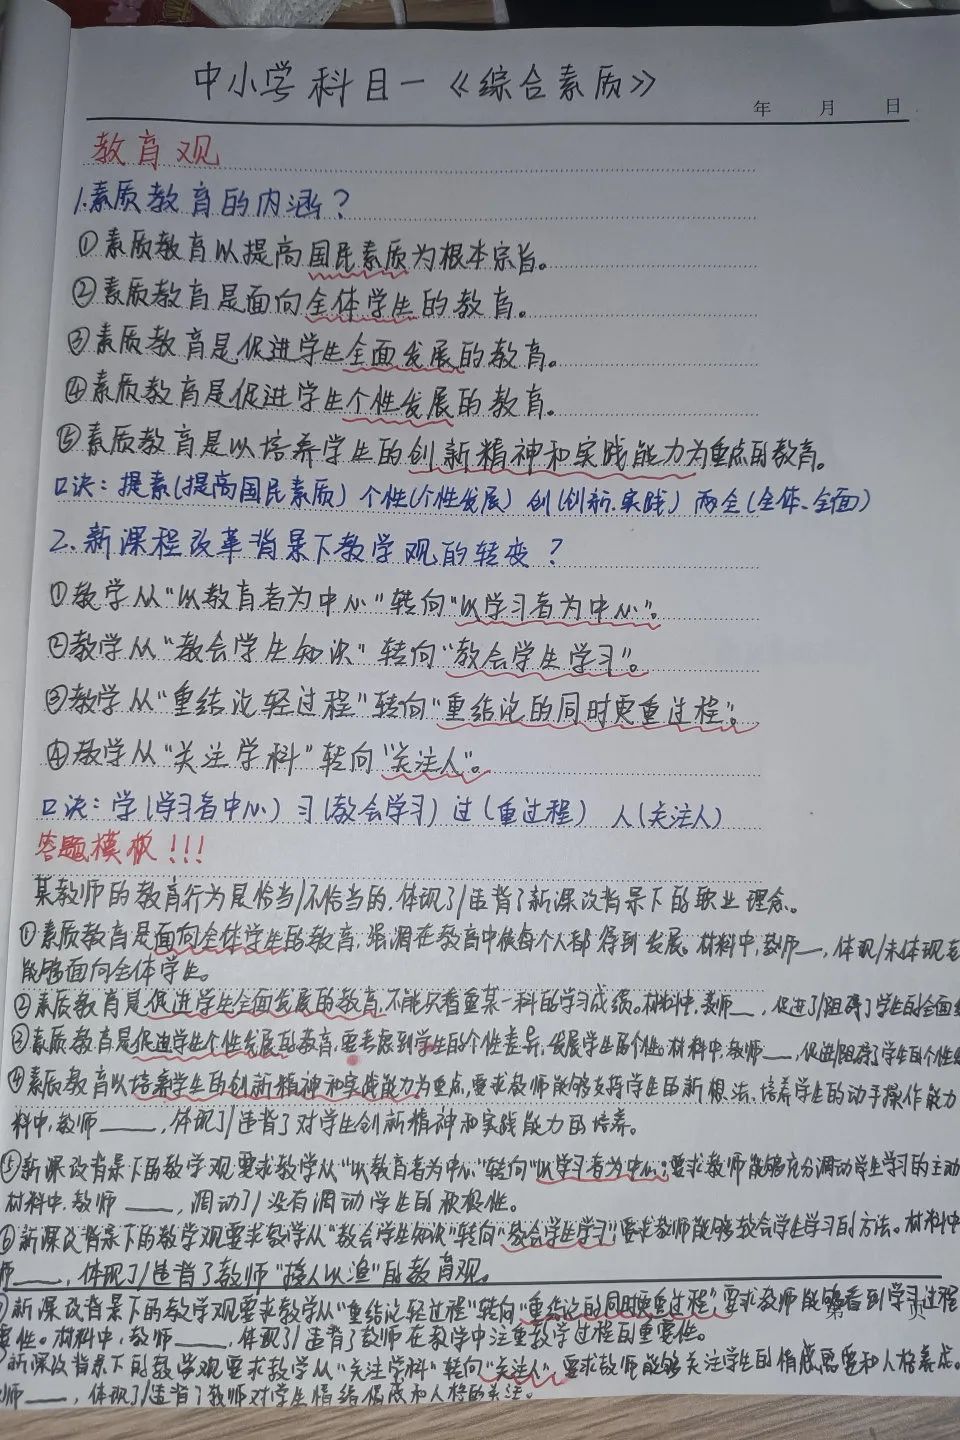 中小学科目一《综合素质》
年 月 日
教育观
1.素质教育的内涵？
①素质教育以提高国民素质为根本宗旨。
②素质教育是面向全体学生的教育。
③素质教育是促进学生全面发展的教育。
④素质教育是促进学生个性发展的教育。
⑤素质教育是以培养学生的创新精神和实践能力为重点的教育。
口决：提素(提高国民素质) 个性(个性发展) 创(创新.实践) 两全(全体、全面)
2.新课程改革背景下教学观的转变？
①教学从“以教育者为中心”转向“以学习者为中心”。
②教学从“教会学生知识”转向“教会学生学习”。
③教学从“重结论轻过程”转向“重结论的同时更重过程”。
④教学从“关注学科”转向“关注人”。
口决：学(学习者中心) 习(教会学习) 过(重过程) 人(关注人)
答题模板!!!
某教师的教育行为是恰当/不恰当的.体现了/违背了新课改背景下的职业理念。
①素质教育是面向全体学生的教育,强调在教育中使每个人都得到发展。材料中,教师__,体现/未体现
能够面向全体学生。
②素质教育是促进学生全面发展的教育,不能只看重某一科的学习成绩。材料中,教师__,促进了/阻碍了学生的全面
③素质教育是促进学生个性发展的教育,要考虑到学生的个性差异,发展学生的个性。材料中,教师__,促进/阻碍了学生的个性
④素质教育以培养学生的创新精神和实践能力为重点,要求教师能够支持学生的新想法、培养学生的动手操作能力
料中,教师____,体现了/违背了对学生创新精神和实践能力的培养。
⑤新课改背景下的教学观要求教学从“以教育者为中心”转向“以学习者为中心”,要求教师能够充分调动学生学习的主动
材料中,教师____,调动了/没有调动学生的积极性。
⑥新课改背景下的教学观要求教学从“教会学生知识”转向“教会学生学习”,要求教师能够教会学生学习的方法。材料中
师____,体现了/违背了教师“授人以渔”的教育观。
新课改背景下的教学观要求教学从“重结论轻过程”转向“重结论的同时更重过程”,要求教师能够看到学习过程
第 页
要性。材料中,教师____,体现了/违背了教师在教学中注重教学过程的重要性。
新课改背景下的教学观要求教学从“关注学科”转向“关注人”,要求教师能够关注学生的情感需要和人格养成。
师____,体现了/违背了教师对学生情绪情感和人格的关注。